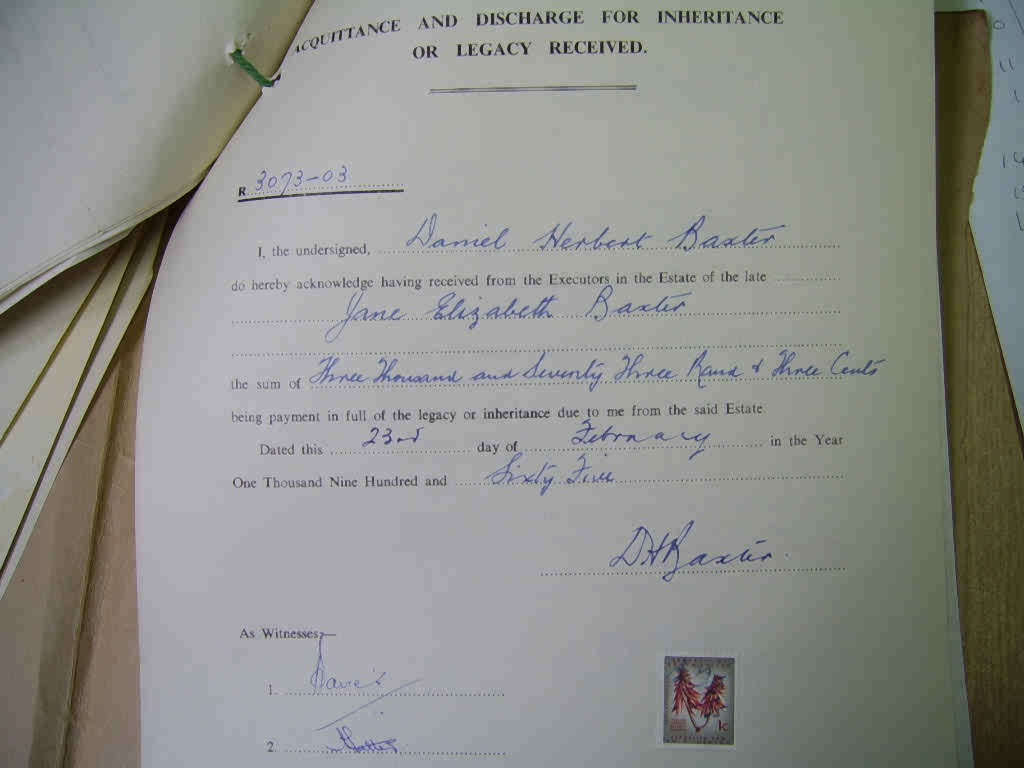 ACQUITTANCE AND DISCHARGE FOR INHERITANCE
OR LEGACY RECEIVED.
R 3073-03
I, the undersigned, Daniel Herbert Baxter
do hereby acknowledge having received from the Executors in the Estate of the late
Jane Elizabeth Baxter
the sum of Three Thousand and Seventy Three Rand & Three Cents
being payment in full of the legacy or inheritance due to me from the said Estate.
Dated this 23rd day of February in the Year
One Thousand Nine Hundred and Sixty Five
DHBaxter.
As Witnesses:
1.
2.